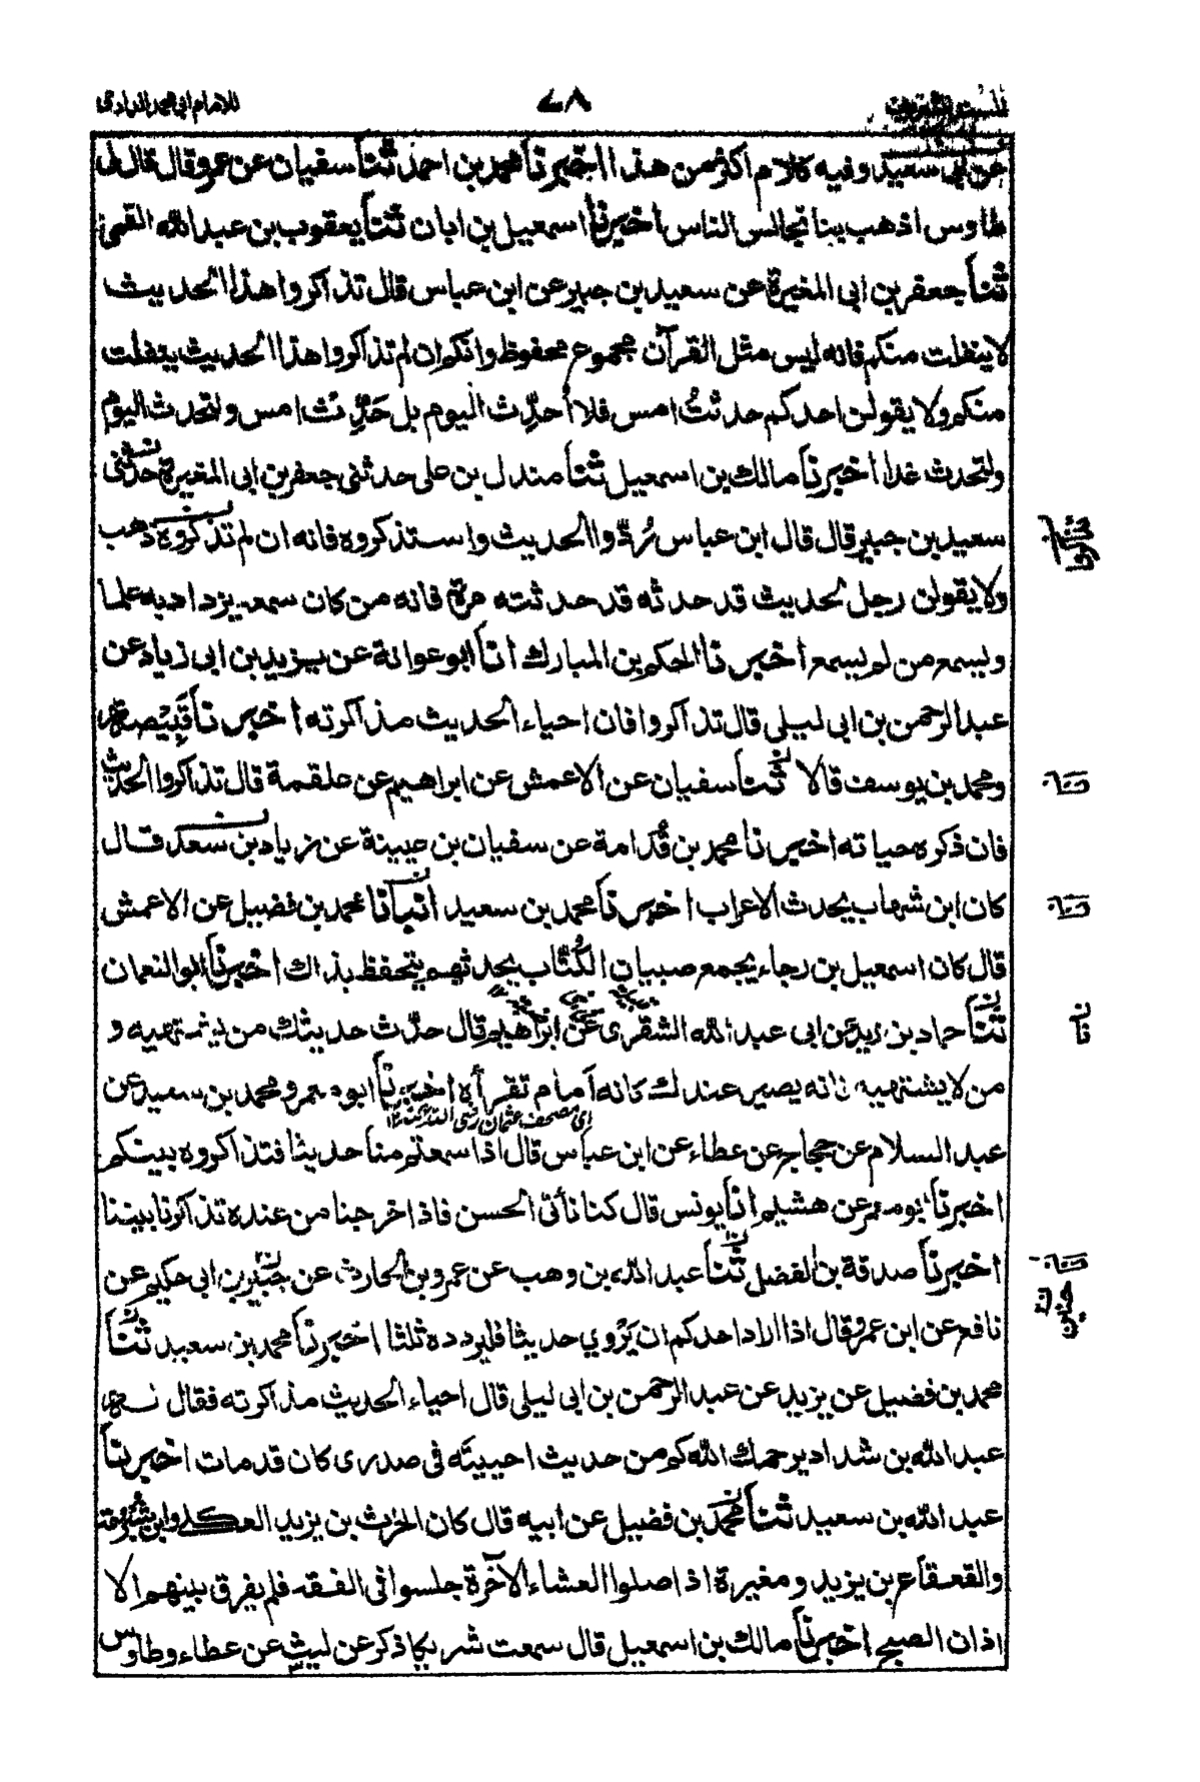 ٧٨
عن ابي سعيد وفيه كلام اكثر من هذا اخبرنا محمد بن احمد ثنا سفيان عن عمرو قال قال لى
طاوس اذهب بنا نجالس الناس اخبرنا اسمعيل بن ابان ثنا يعقوب بن عبد الله القمى
ثنا جعفر بن ابى المغيرة عن سعيد بن جبير عن ابن عباس قال تذاكروا هذا الحديث
لا ينفلت منكم فانه ليس مثل القرآن مجموع محفوظ وانكم ان لم تذاكروا هذا الحديث ينفلت
منكم ولا يقولن احدكم حدثتُ امس فلا أحدّث اليوم بل حَدِّث امس ولتحدث اليوم
ولتحدث غدا اخبرنا مالك بن اسمعيل ثنا مندل بن على حدثنى جعفر بن ابى المغيرة حدثنى
سعيد بن جبير قال قال ابن عباس رُدّوا الحديث واستذكروه فانه ان لم تذكروه ذهب
ولا يقولن رجل لحديث قد حدثه قد حدثته مرة فانه من كان سمعه يزداد به علما
ويسمع من لم يسمع اخبرنا الحكم بن المبارك انا ابو عوانة عن يزيد بن ابى زياد عن
عبد الرحمن بن ابى ليلى قال تذاكروا فان احياء الحديث مذاكرته اخبرنا قَبِيْصة
ومحمد بن يوسف قالا ثنا سفيان عن الاعمش عن ابراهيم عن علقمة قال تذاكروا الحديث
فان ذكره حياته اخبرنا محمد بن قُدامة عن سفيان بن عيينة عن زياد بن سعد قال
كان ابن شهاب يحدث الاعراب اخبرنا محمد بن سعيد انبانا محمد بن فضيل عن الاعمش
قال كان اسمعيل بن رجاء يجمع صبيان الكُتّاب يحدثهم يتحفظ بذاك اخبرنا ابو النعمان
ثنا حماد بن زيد عن ابى عبد الله الشقرى عن ابراهيم قال حدّث حديثك من يشتهيه و
من لا يشتهيه فانه يصير عندك كانه امام تقرأه اخبرنا ابو معمر ومحمد بن سعيد عن
اى مصحف عثمان رضى الله عنه ١٢
عبد السلام عن حجاج عن عطاء عن ابن عباس قال اذا سمعتم منا حديثا فتذاكروه بينكم
اخبرنا ابو معمر عن هشيم انا يونس قال كنا نأتى الحسن فاذا خرجنا من عنده تذاكرنا بيننا
اخبرنا صدقة بن الفضل ثنا عبد الله بن وهب عن عمرو بن الحارث عن جبير بن ابى حكيم عن
نافع عن ابن عمر وقال اذا اراد احدكم ان يَرْوي حديثا فليردده ثلثا اخبرنا محمد بن سعيد ثنا
محمد بن فضيل عن يزيد عن عبد الرحمن بن ابى ليلى قال احياء الحديث مذاكرته فقال له
عبد الله بن شداد يرحمك الله كم من حديث احييتَه فى صدرى كان قد مات اخبرنا
عبد الله بن سعيد ثنا محمد بن فضيل عن ابيه قال كان الحرث بن يزيد العكلى وابن شُبْرُمة
والقعقاع بن يزيد ومغيرة اذا صلوا العشاء الآخرة جلسوا فى الفقه فلم يفرق بينهم الا
اذان الصبح اخبرنا مالك بن اسمعيل قال سمعت شريكا ذكر عن ليث عن عطاء وطاوس
حنين